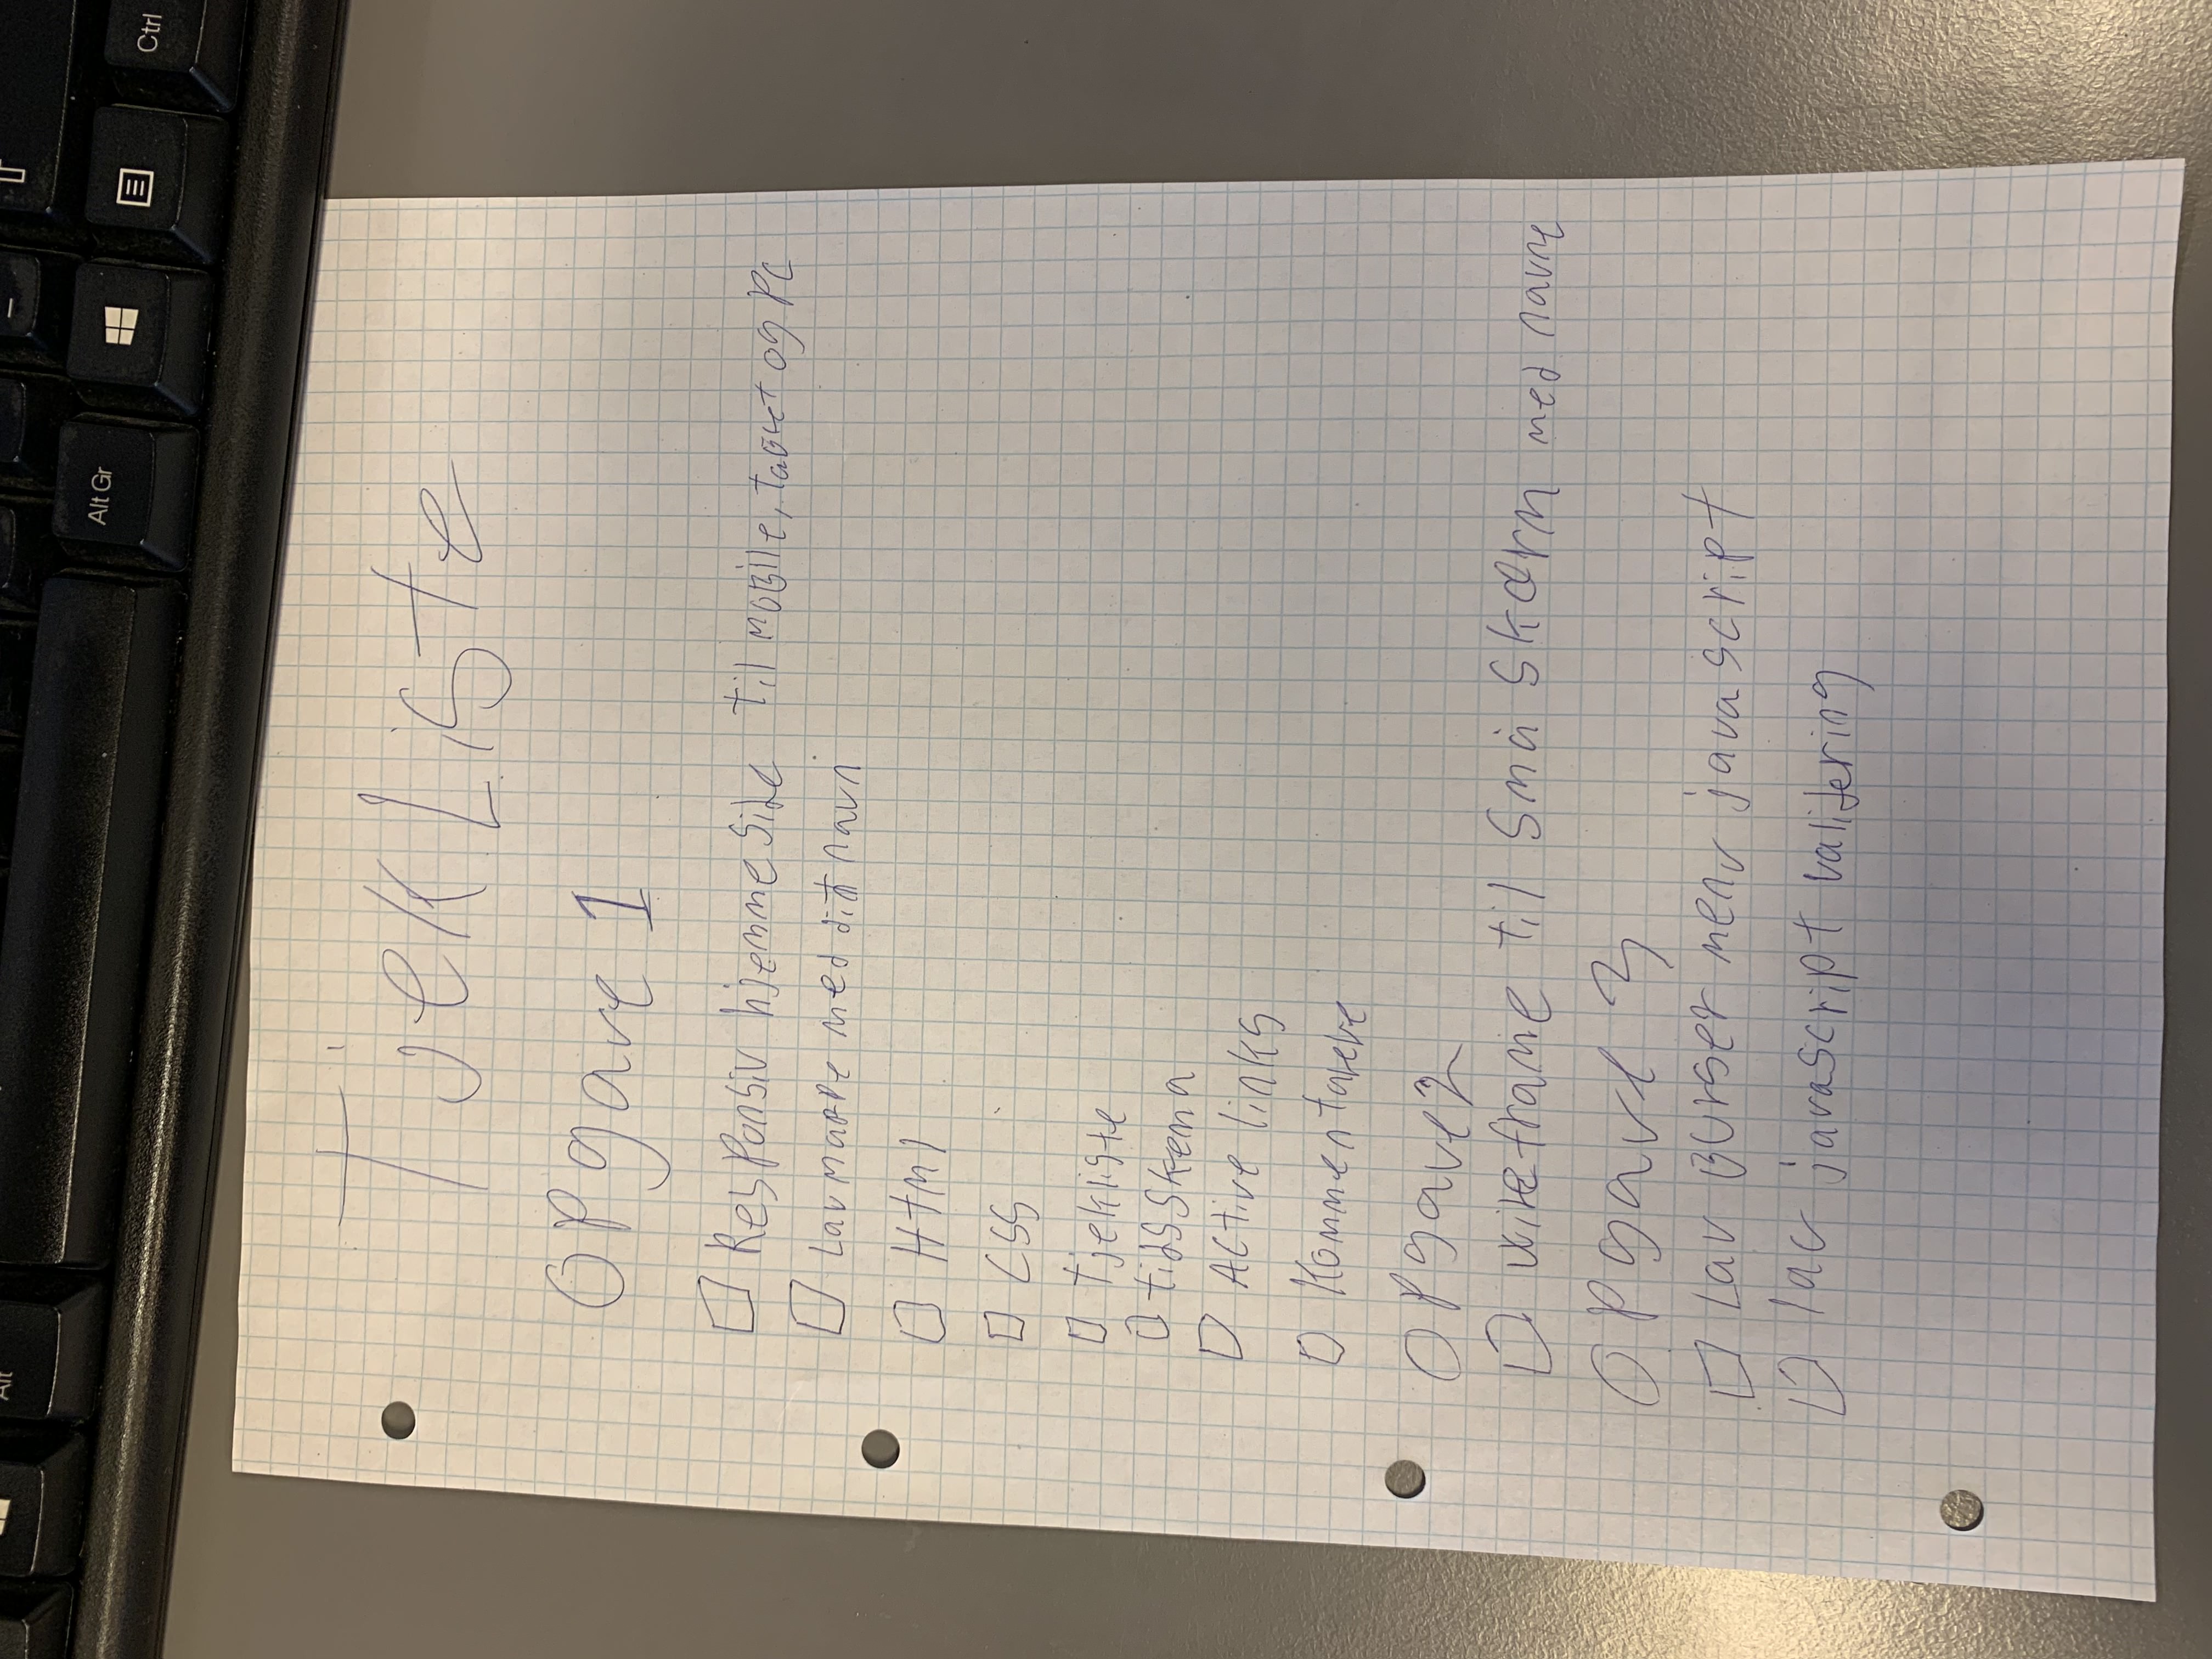 Tjek Liste
Opgave 1
Responsiv hjemmeside till mobile, tablet og PC
Lav mappe med dit navn
Html
CSS
tjekliste
tidsskema
Active links
Kommentarer
Opgave 2
wireframe til små skærm med navne
Opgave 3
Lav Burger menu javascript
lav javascript validering
Ctrl
Alt Gr
Alt